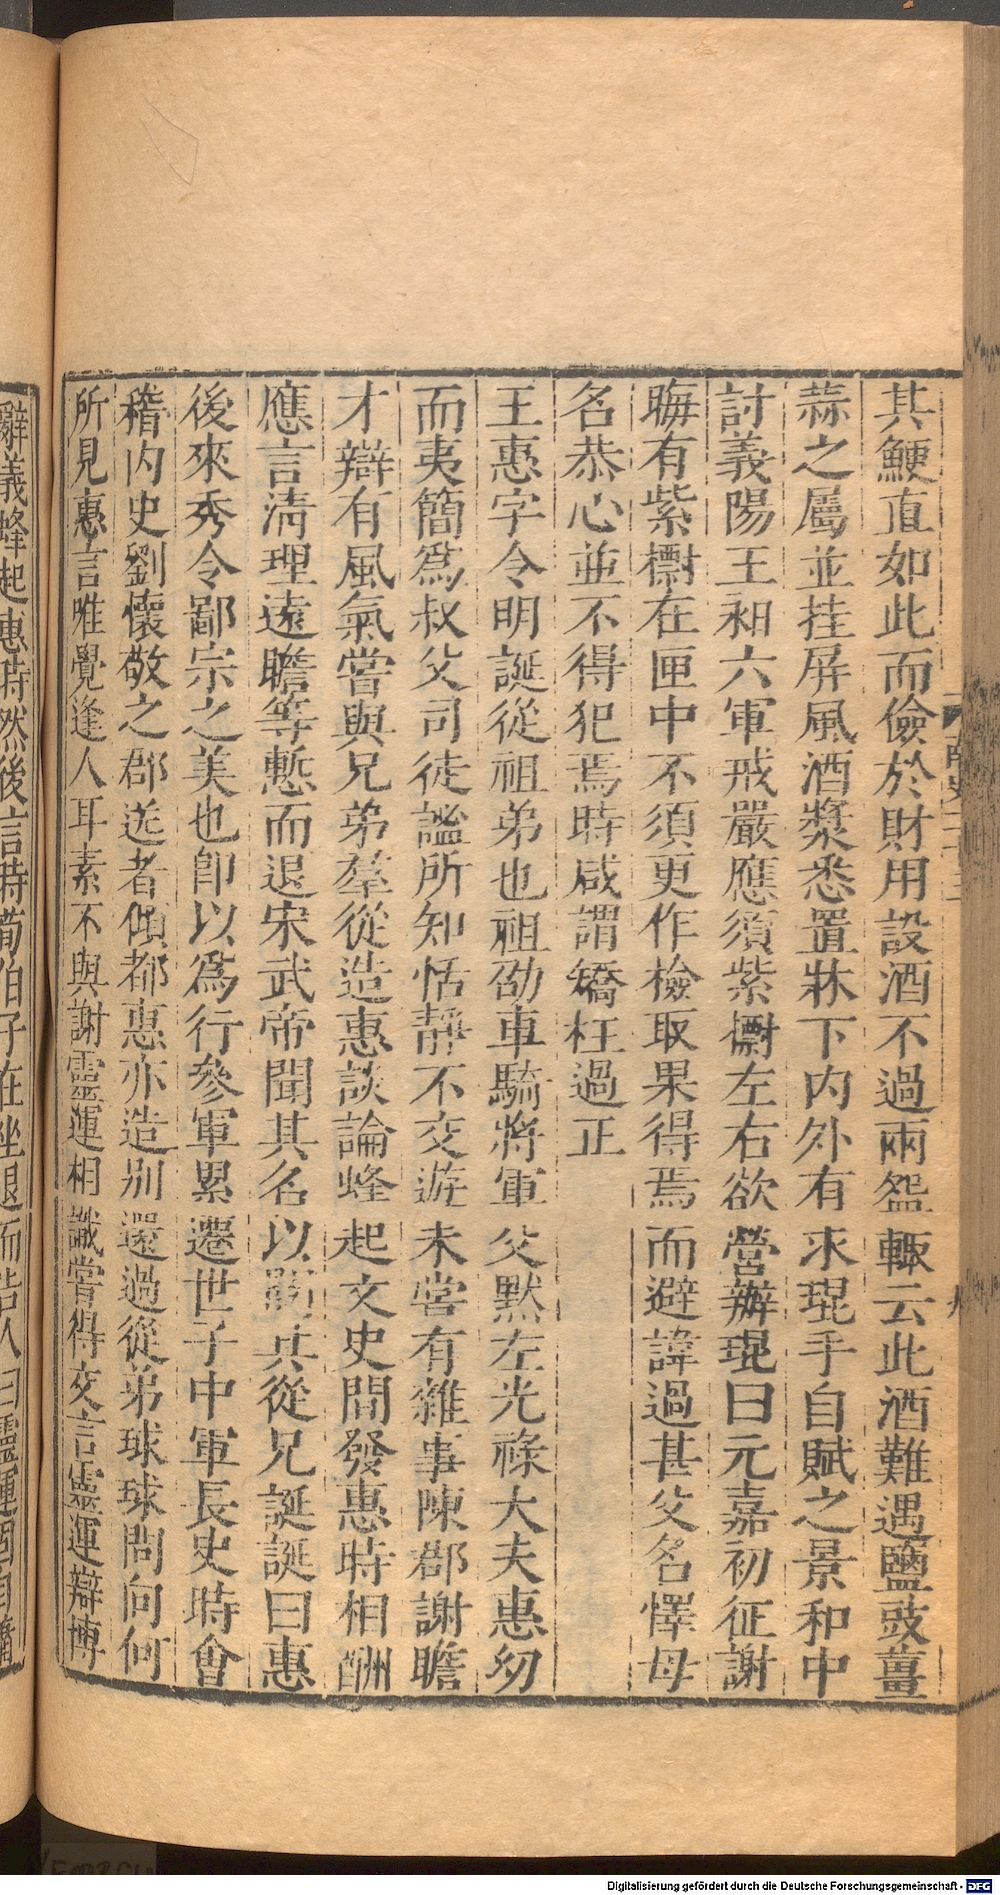 其鯁直如此而儉於財用設酒不過兩盌輙云此酒難遇鹽豉薑
蒜之屬並挂屏風酒漿悉置牀下内外有求琨手自賦之景和中
討義陽王昶六軍戒嚴應須紫㯡左右欲營辦琨曰元嘉初征謝
晦有紫㯡在匣中不須更作檢取果得焉而避諱過甚父名懌母
名恭心並不得犯焉時咸謂矯枉過正
王惠字令明誕從祖弟也祖劭車騎將軍父默左光祿大夫惠幼
而夷簡爲叔父司徒謐所知恬静不交遊未嘗有雜事陳郡謝瞻
才辯有風氣嘗與兄弟羣從造惠談論蜂起文史間發惠時相酬
應言清理遠瞻等慙而退宋武帝聞其名以問其從兄誕誕曰惠
後來秀令鄙宗之美也卽以爲行參軍累遷世子中軍長史時會
稽内史劉懷敬之郡送者傾都惠亦造别還過從弟球球問向何
所見惠言唯覺逢人耳素不與謝靈運相識嘗得交言靈運辯博
辭義蜂起惠時然後言時荀伯子在坐退而告人曰靈運固自蕭
南史二十三
九
Digitalisierung gefördert durch die Deutsche Forschungsgemeinschaft - DFG